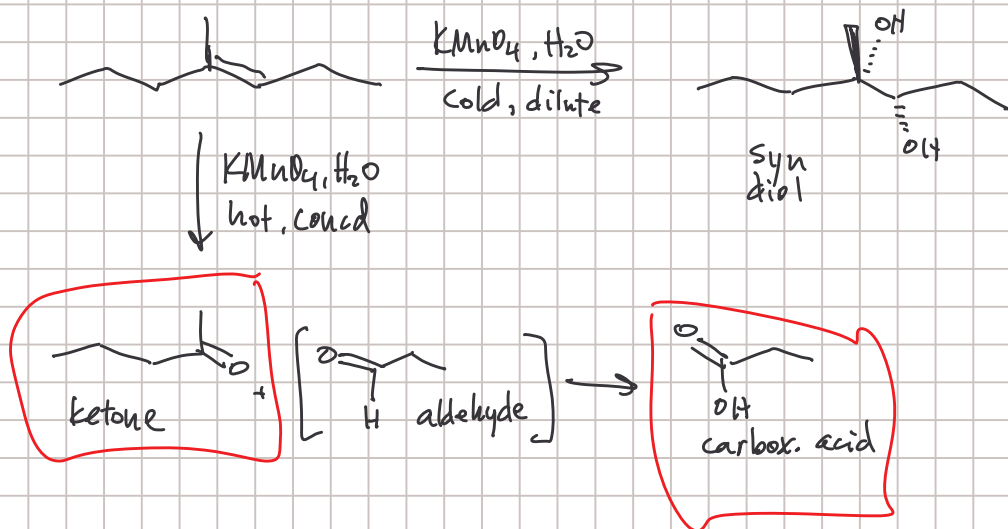 KMnO4, H2O
cold, dilute
OH
OH
syn
diol
KMnO4, H2O
hot, concd
O
+
ketone
O
H
aldehyde
O
OH
carbox. acid